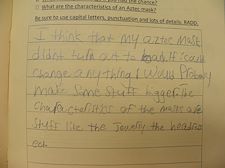 had the chance?
What are the characteristics of an Aztec mask?
Be sure to use capital letters, punctuation and lots of details. RADD.
I think that my aztec mask
didnt turn out to bad if I could
change anything I would Probably
make some stuff bigger like
characteristics of the masks are
stuff like the Jewelry the headress
ect.